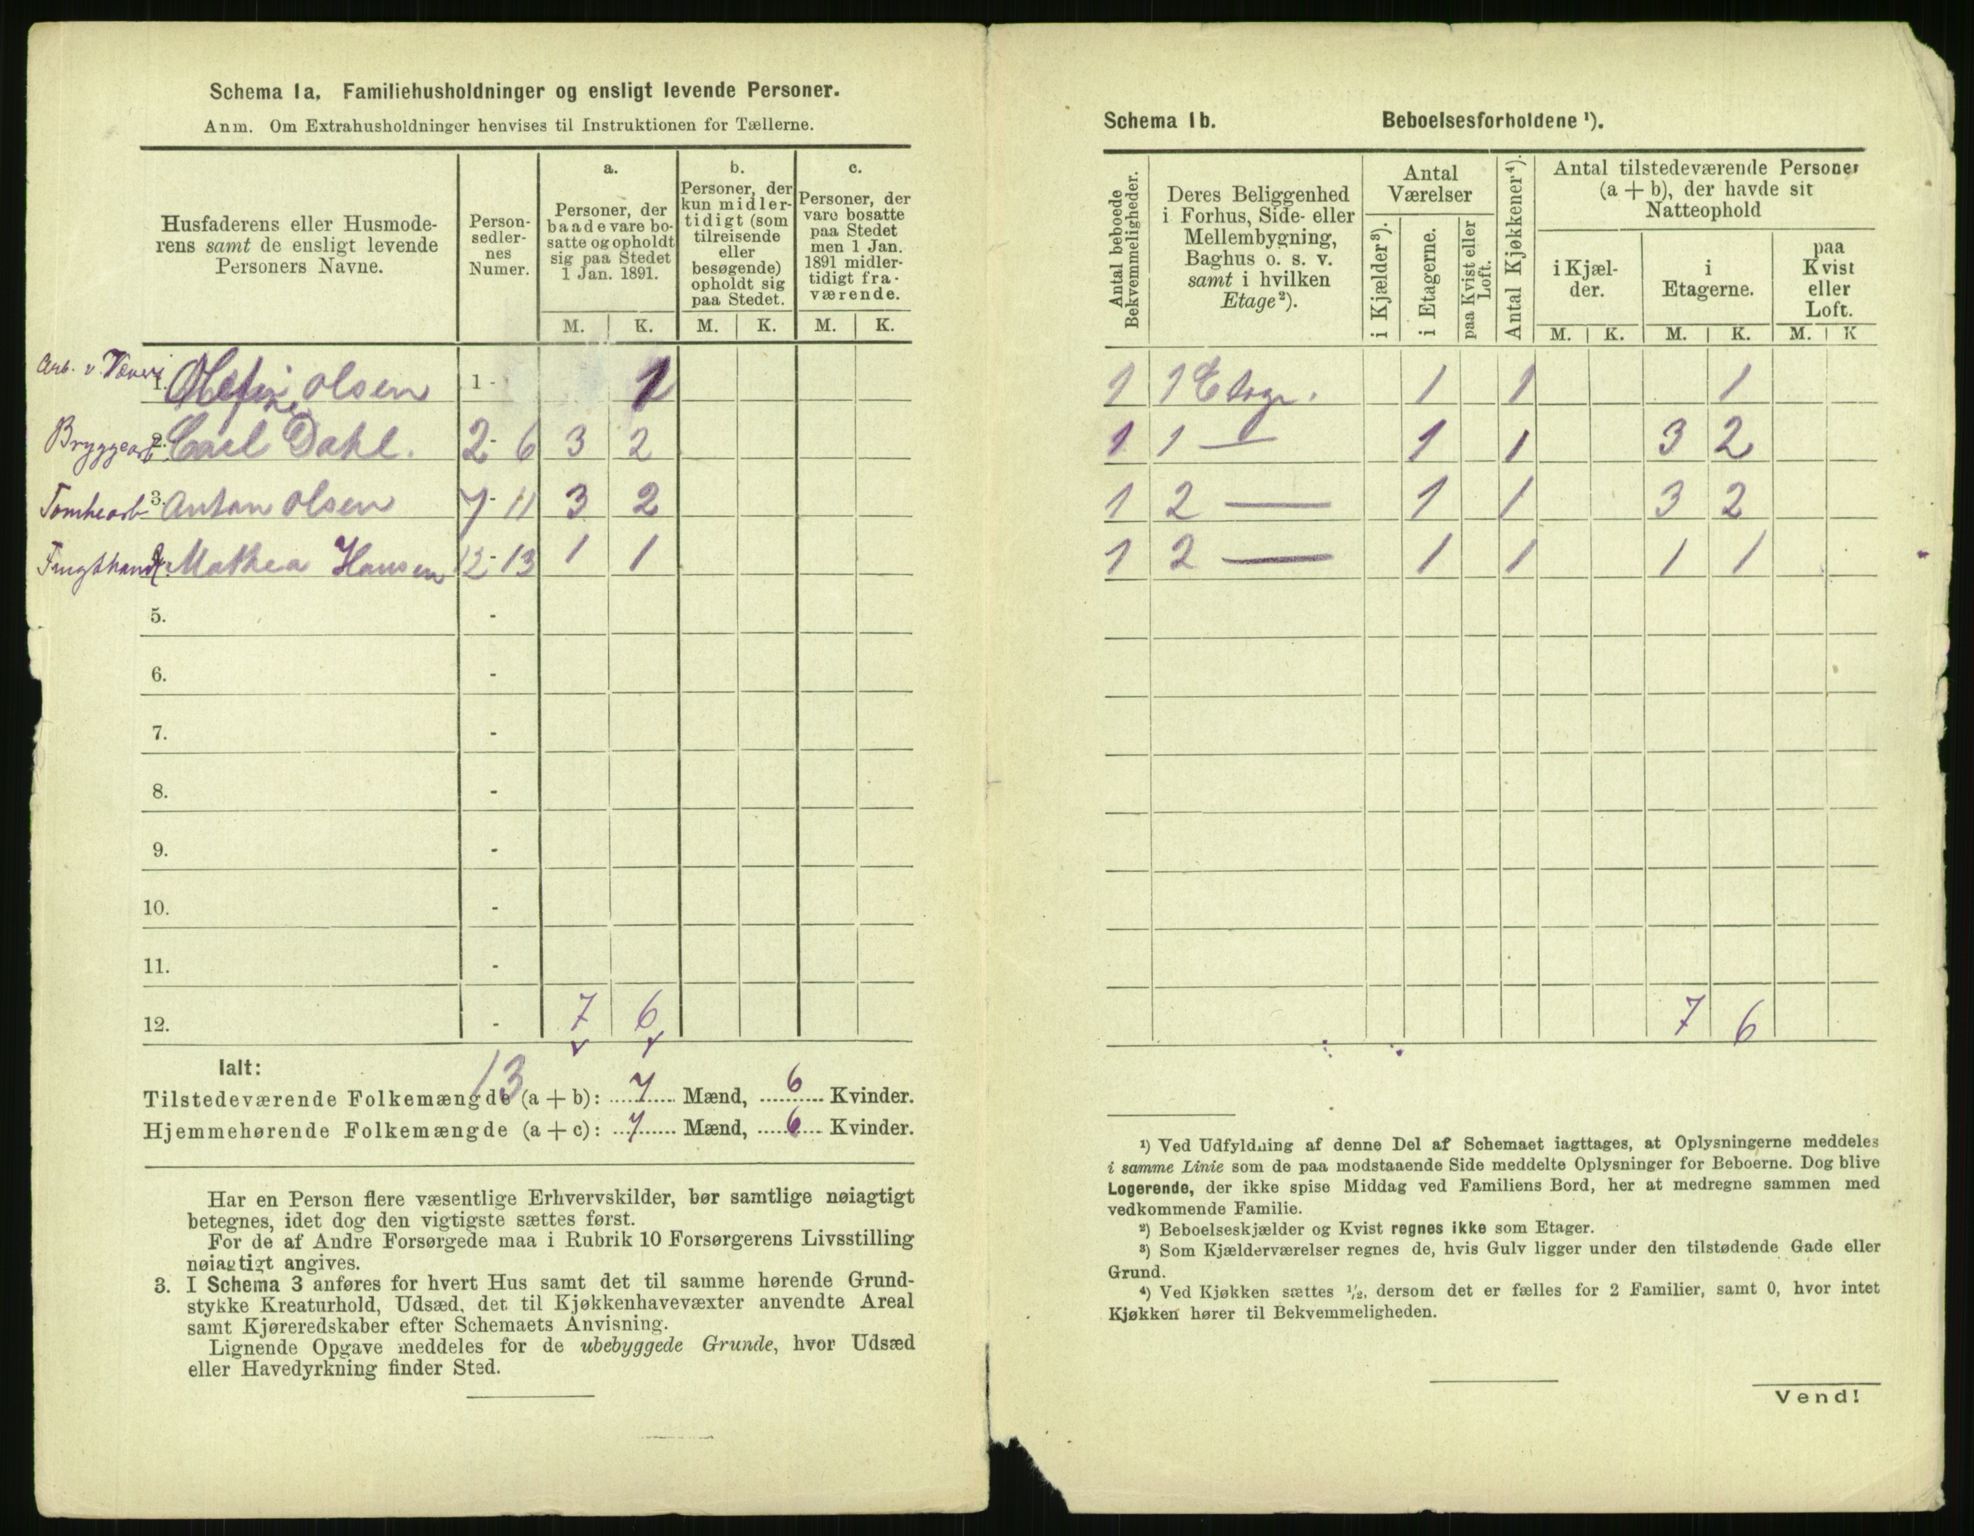 Schema 1a. Familiehusholdninger og ensligt levende Personer.
Anm. Om Extrahusholdninger henvises til Instruktionen for Tællerne.
Husfaderens eller Husmode-
rens samt de ensligt levende
Personers Navne.
Person-
sedler-
nes
Numer.
a.
Personer, der
baade vare bo-
satte og opholdt
sig paa Stedet
1 Jan. 1891.
b.
Personer, der
kun midler-
tidigt (som
tilreisende
eller
besøgende)
opholdt sig
paa Stedet.
c.
Personer, der
vare bosatte
paa Stedet
men 1 Jan.
1891 midler-
tidigt fra-
værende.
M. K. M. K. M. K.
Arb. v. Væveri 1. Olefine Olsen 1 - 1
Bryggearb. 2. Carl Dahl. 2 - 6 3 2
Tomtearb 3. Anton Olsen 7 - 11 3 2
Frugthand 4. Mathea Hansen 12 - 13 1 1
5. -
6. -
7. -
8. -
9. -
10. -
11. -
12. - 7 6
Ialt: 13
Tilstedeværende Folkemængde (a + b): 7 Mænd, 6 Kvinder.
Hjemmehørende Folkemængde (a + c): 7 Mænd, 6 Kvinder.
Har en Person flere væsentlige Erhvervskilder, bør samtlige nøiagtigt
betegnes, idet dog den vigtigste sættes først.
For de af Andre Forsørgede maa i Rubrik 10 Forsørgerens Livsstilling
nøiagtigt angives.
3. I Schema 3 anføres for hvert Hus samt det til samme hørende Grund-
stykke Kreaturhold, Udsæd, det til Kjøkkenhavevæxter anvendte Areal
samt Kjøreredskaber efter Schemaets Anvisning.
Lignende Opgave meddeles for de ubebyggede Grunde, hvor Udsæd
eller Havedyrkning finder Sted.
Schema 1b. Beboelsesforholdene ¹).
Antal beboede
Bekvemmeligheder.
Deres Beliggenhed
i Forhus, Side- eller
Mellembygning,
Baghus o. s. v.
samt i hvilken
Etage ²).
Antal
Værelser
i Kjælder ³).
i Etagerne.
paa Kvist eller
Loft.
Antal Kjøkkener ⁴).
Antal tilstedeværende Personer
(a + b), der havde sit
Natteophold
i Kjæl-
der.
i
Etagerne.
paa
Kvist
eller
Loft.
M. K. M. K. M. K
1 1 Etage. 1 1 1
1 1 — 1 1 3 2
1 2 — 1 1 3 2
1 2 — 1 1 1 1
7 6
¹) Ved Udfyldning af denne Del af Schemaet iagttages, at Oplysningerne meddeles
i samme Linie som de paa modstaaende Side meddelte Oplysninger for Beboerne. Dog blive
Logerende, der ikke spise Middag ved Familiens Bord, her at medregne sammen med
vedkommende Familie.
²) Beboelseskjælder og Kvist regnes ikke som Etager.
³) Som Kjælderværelser regnes de, hvis Gulv ligger under den tilstødende Gade eller
Grund.
⁴) Ved Kjøkken sættes ½, dersom det er fælles for 2 Familier, samt 0, hvor intet
Kjøkken hører til Bekvemmeligheden.
Vend!